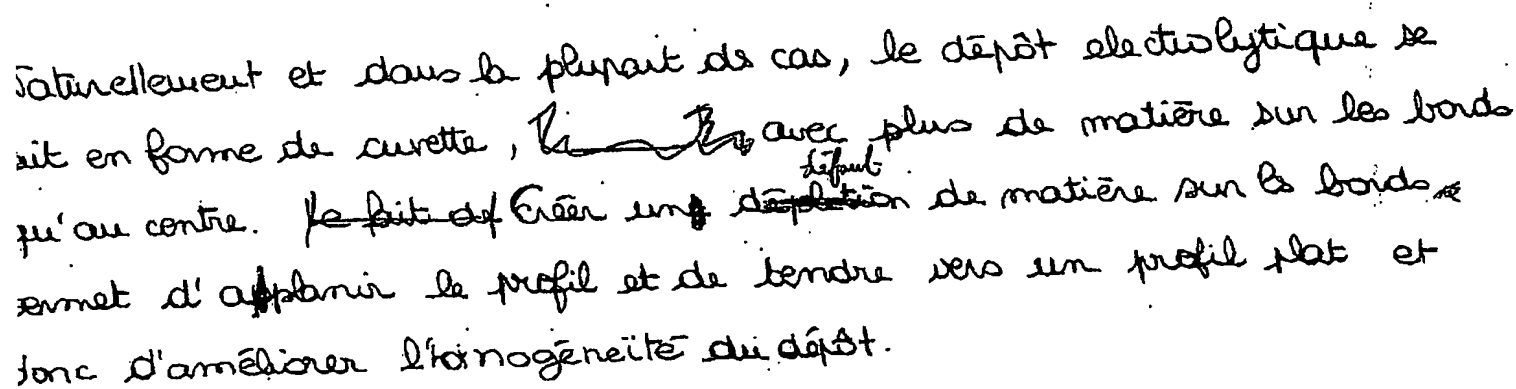 Naturellement et dans la plupart ds cas, le dépôt electrolytique se
fait en forme de cuvette, avec plus de matière sur les bords
qu'au centre. Créer un défaut de matière sur ls bords
permet d'applanir le profil et de tendre vers un profil plat et
donc d'améliorer l'homogénéïté du dépôt.